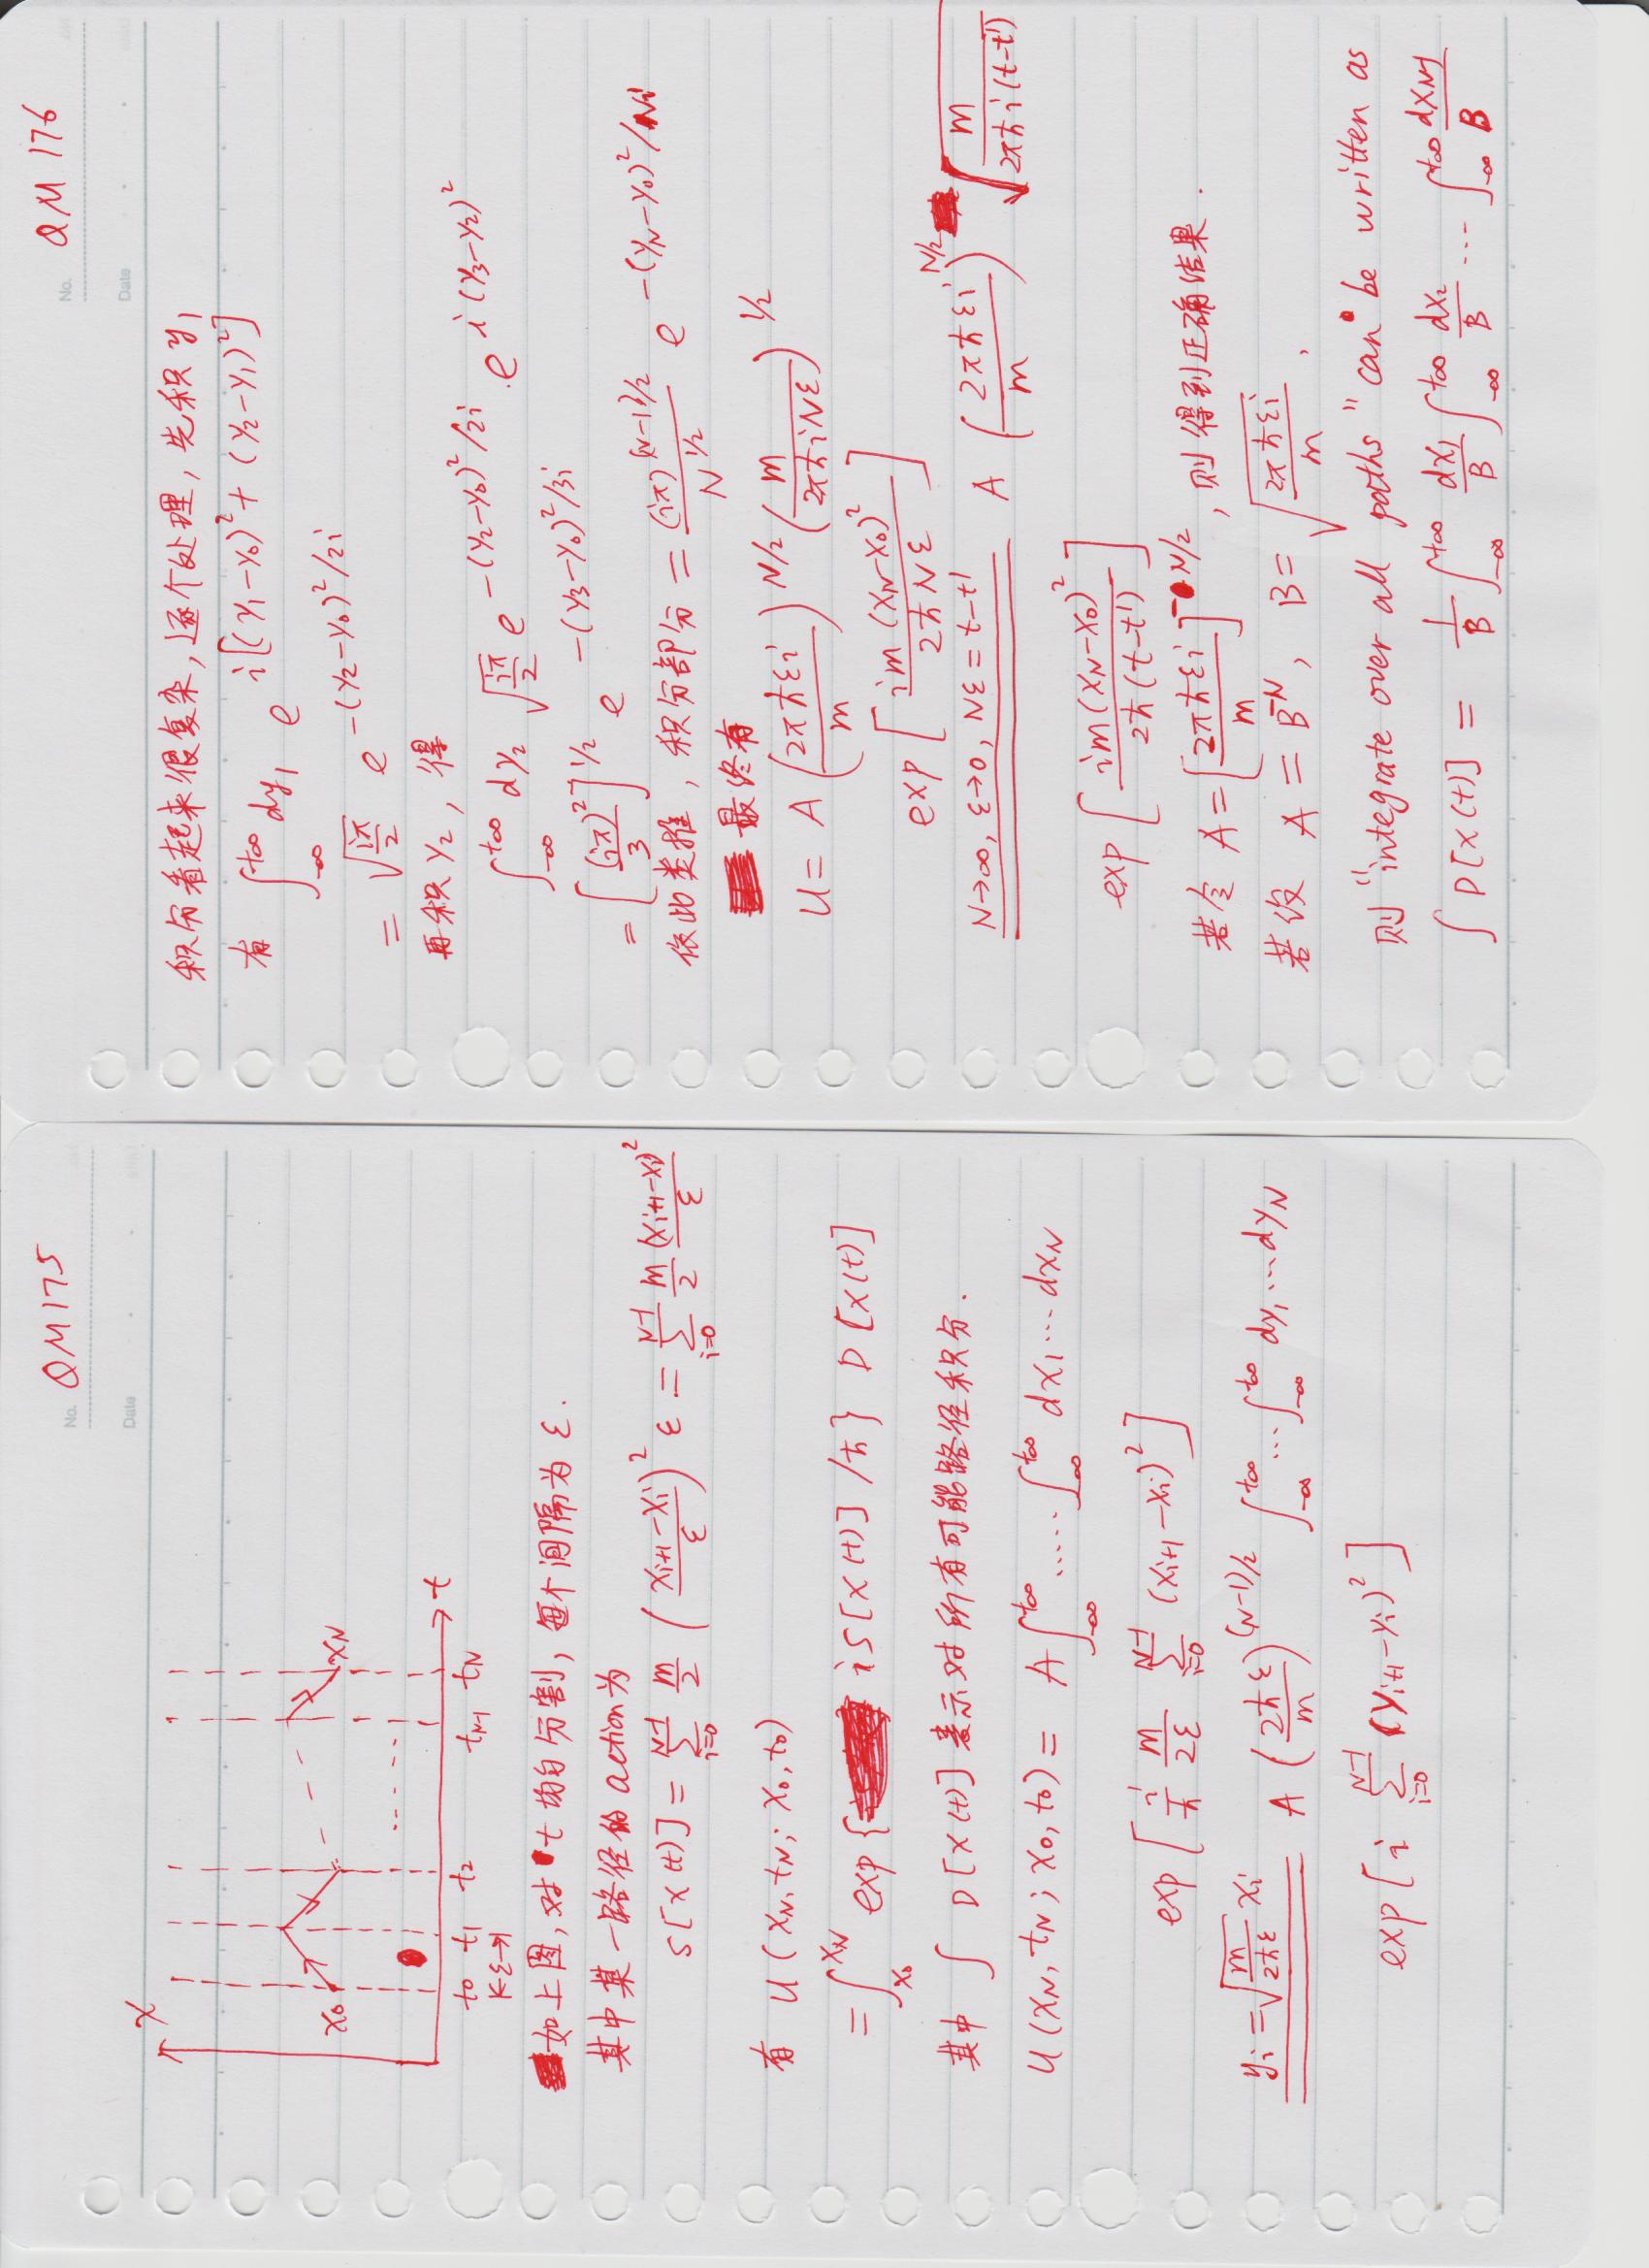 No. QM175
Date
x
x₀ x_N
t
t₀ t₁ t₂ ...... t_{N-1} t_N
|←ε→|
如上图, 对 t 均匀分割, 每个间隔为 ε.
其中某一路径的 action 为
S[x(t)] = \sum_{i=0}^{N-1} \frac{m}{2} (\frac{x_{i+1}-x_i}{ε})^2 ε = \sum_{i=0}^{N-1} \frac{m}{2} \frac{(x_{i+1}-x_i)^2}{ε}
有 U(x_N, t_N; x_0, t_0)
= \int_{x_0}^{x_N} exp{ iS[x(t)]/ħ} D[x(t)]
其中 ∫ D[x(t)] 表示对所有可能路径积分.
U(x_N, t_N; x_0, t_0) = A \int_{-∞}^{+∞} ..... \int_{-∞}^{+∞} dx_1 ... dx_N
exp[ \frac{i}{ħ} \frac{m}{2ε} \sum_{i=0}^{N-1} (x_{i+1}-x_i)^2 ]
y_i = \sqrt{\frac{m}{2ħε}} x_i A (\frac{2ħε}{m})^{(N-1)/2} \int_{-∞}^{+∞} ... \int_{-∞}^{+∞} dy_1 ... dy_N
exp[ i \sum_{i=0}^{N-1} (y_{i+1}-y_i)^2 ]
No. QM 176
Date
积分看起来很复杂, 逐个处理, 先积 y_1
有 \int_{-∞}^{+∞} dy_1 e^{i[(y_1-y_0)^2 + (y_2-y_1)^2]}
= \sqrt{\frac{iπ}{2}} e^{-(y_2-y_0)^2/2i}
再积 y_2, 得
\int_{-∞}^{+∞} dy_2 \sqrt{\frac{iπ}{2}} e^{-(y_2-y_0)^2/2i} · e^{i(y_3-y_2)^2}
= [\frac{(iπ)^2}{3}]^{1/2} e^{-(y_3-y_0)^2/3i}
依此类推, 积分部分 = \frac{(iπ)^{(N-1)/2}}{N^{1/2}} e^{-(y_N-y_0)^2/Ni}
最终有
U = A (\frac{2πħεi}{m})^{N/2} (\frac{m}{2πħiNε})^{1/2}
exp[ \frac{im(x_N-x_0)^2}{2ħNε} ]
N→∞, ε→0, Nε = t-t' A (\frac{2πħεi}{m})^{N/2} \sqrt{\frac{m}{2πħi(t-t')}}
exp[ \frac{im(x_N-x_0)^2}{2ħ(t-t')} ]
若令 A = [\frac{2πħεi}{m}]^{-N/2}, 则得到正确结果.
若设 A = B^{-N}, B = \sqrt{\frac{2πħεi}{m}},
则 "integrate over all paths" can be written as
∫ D[x(t)] = \frac{1}{B} \int_{-∞}^{+∞} \frac{dx_1}{B} \int_{-∞}^{+∞} \frac{dx_2}{B} ... \int_{-∞}^{+∞} \frac{dx_{N-1}}{B}